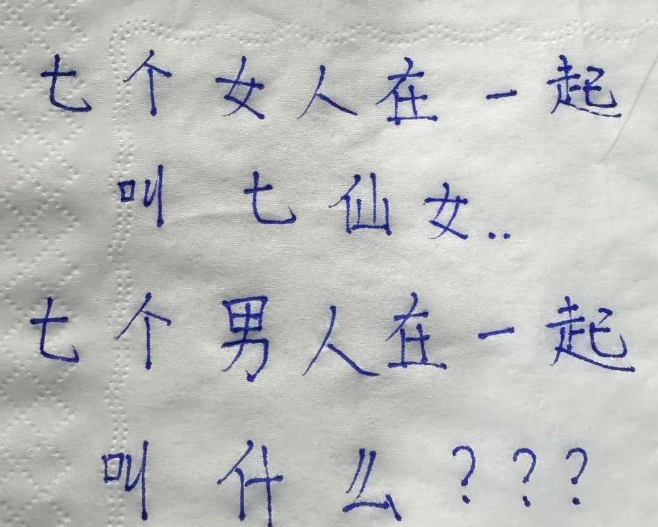 七个女人在一起
叫七仙女..
七个男人在一起
叫什么???